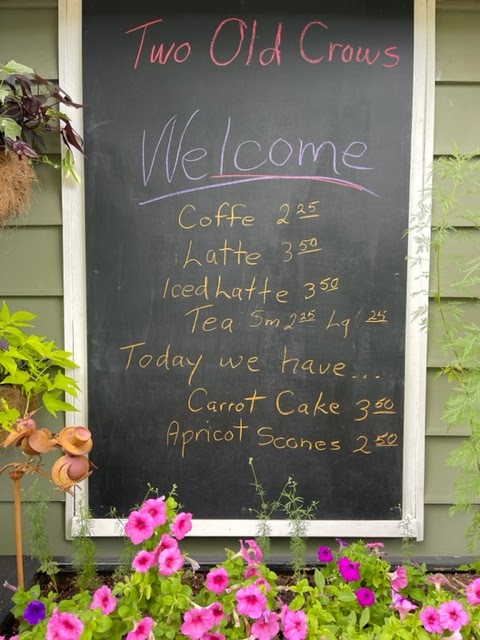 Two Old Crows
Welcome
Coffe 2 25
Latte 3 50
Iced Latte 3 50
Tea Sm 2 25 Lg 25
Today we have...
Carrot Cake 3 50
Apricot Scones 2 50